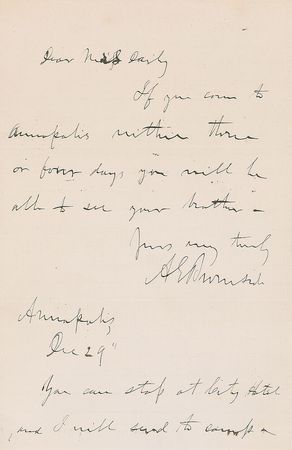 Dear Miss Early
If you come to
Annapolis within three
or four days you will be
able to see your brother –
Yours very truly
A E Burnside
Annapolis,
Dec 29"
You can stop at City Hotel
and I will send to camp –